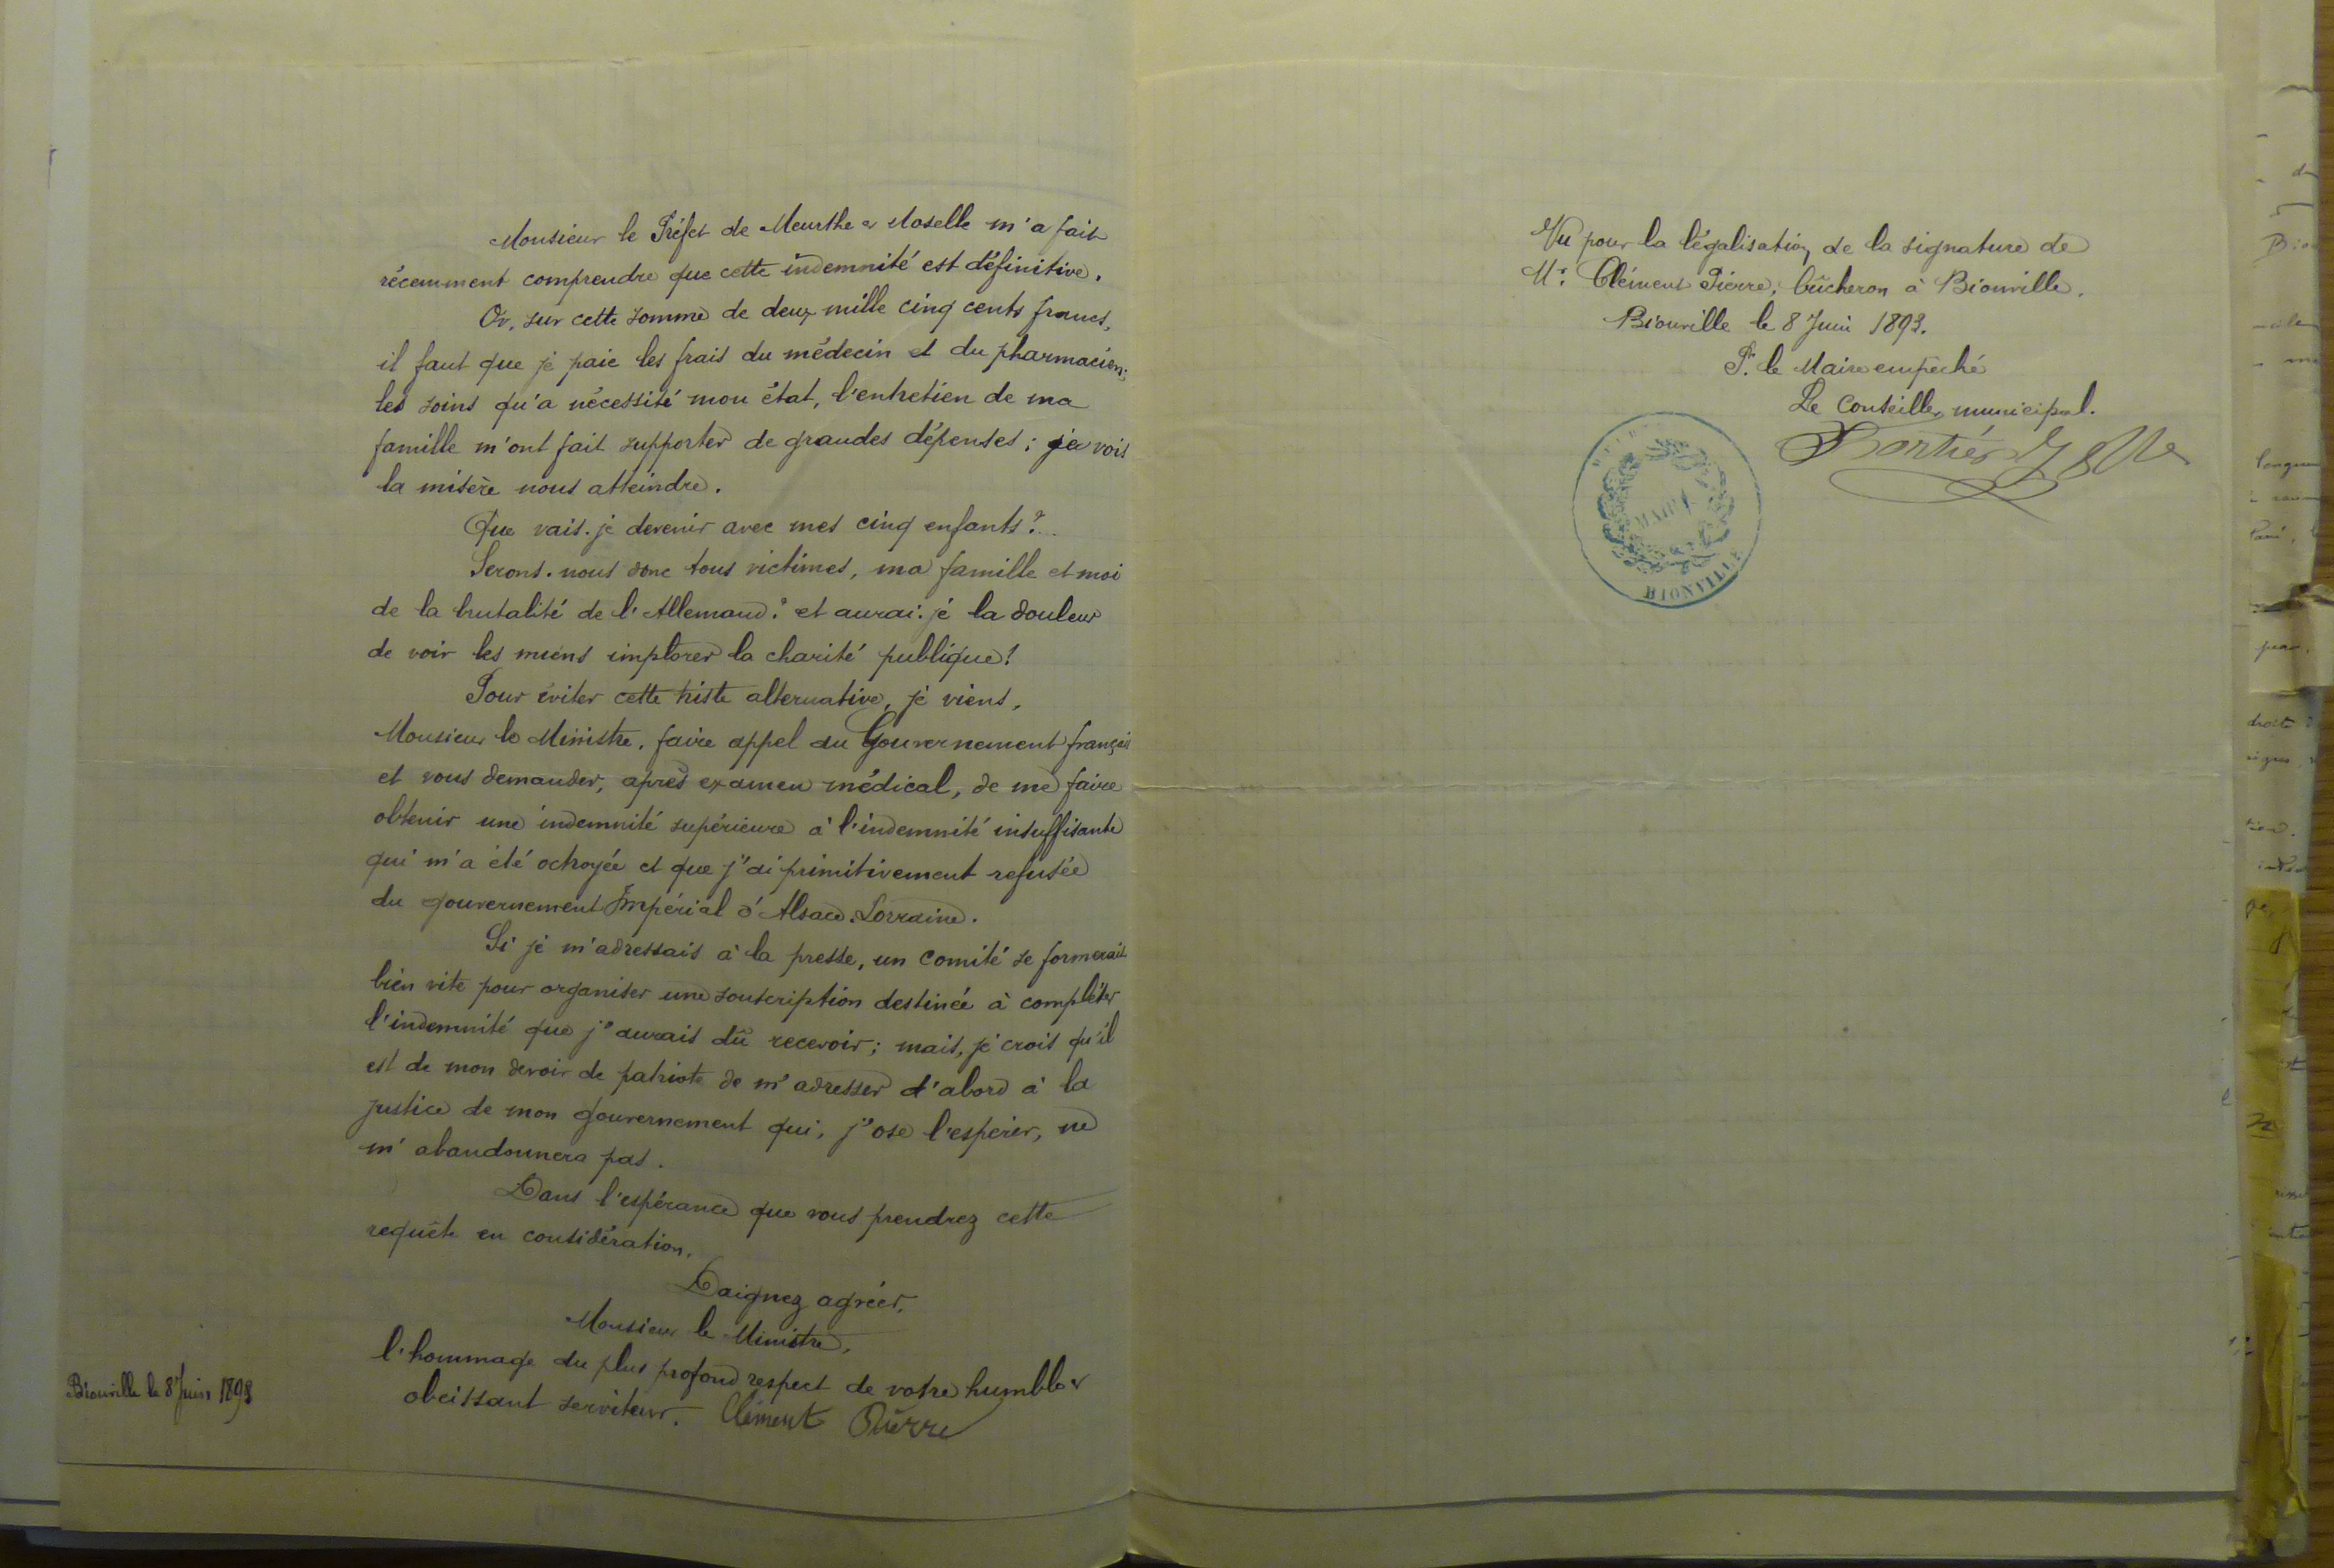 Monsieur le Préfet de Meurthe et Moselle m'a fait
récemment comprendre que cette indemnité est définitive.
Or, sur cette somme de deux mille cinq cents francs,
il faut que je paie les frais du médecin et du pharmacien;
les soins qu'a nécessité mon état, l'entretien de ma
famille m'ont fait supporter de grandes dépenses; je vois
la misère nous atteindre.
Que vais-je devenir avec mes cinq enfants?..
Serons-nous donc tous victimes, ma famille et moi
de la brutalité de l'Allemand? et aurai-je la douleur
de voir les miens implorer la charité publique!
Pour éviter cette triste alternative, je viens,
Monsieur le Ministre, faire appel au Gouvernement français
et vous demander, après examen médical, de me faire
obtenir une indemnité supérieure à l'indemnité insuffisante
qui m'a été octroyée et que j'ai primitivement refusée
du gouvernement Impérial d'Alsace-Lorraine.
Si je m'adressais à la presse, un comité se formerait
bien vite pour organiser une souscription destinée à compléter
l'indemnité que j'aurais dû recevoir; mais, je crois qu'il
est de mon devoir de patriote de m'adresser d'abord à la
justice de mon gouvernement qui, j'ose l'espérer, ne
m'abandonnera pas.
Dans l'espérance que vous prendrez cette
requête en considération,
Daignez agréer,
Monsieur le Ministre,
l'hommage du plus profond respect de votre humble et
obéissant serviteur. Clément Pierre
Bionville le 8 Juin 1893
Vu pour la légalisation de la signature de
Mr. Clément Pierre, bûcheron à Bionville.
Bionville le 8 Juin 1893.
Pr. le Maire empêché
Le Conseiller municipal.
MAIRIE
BIONVILLE